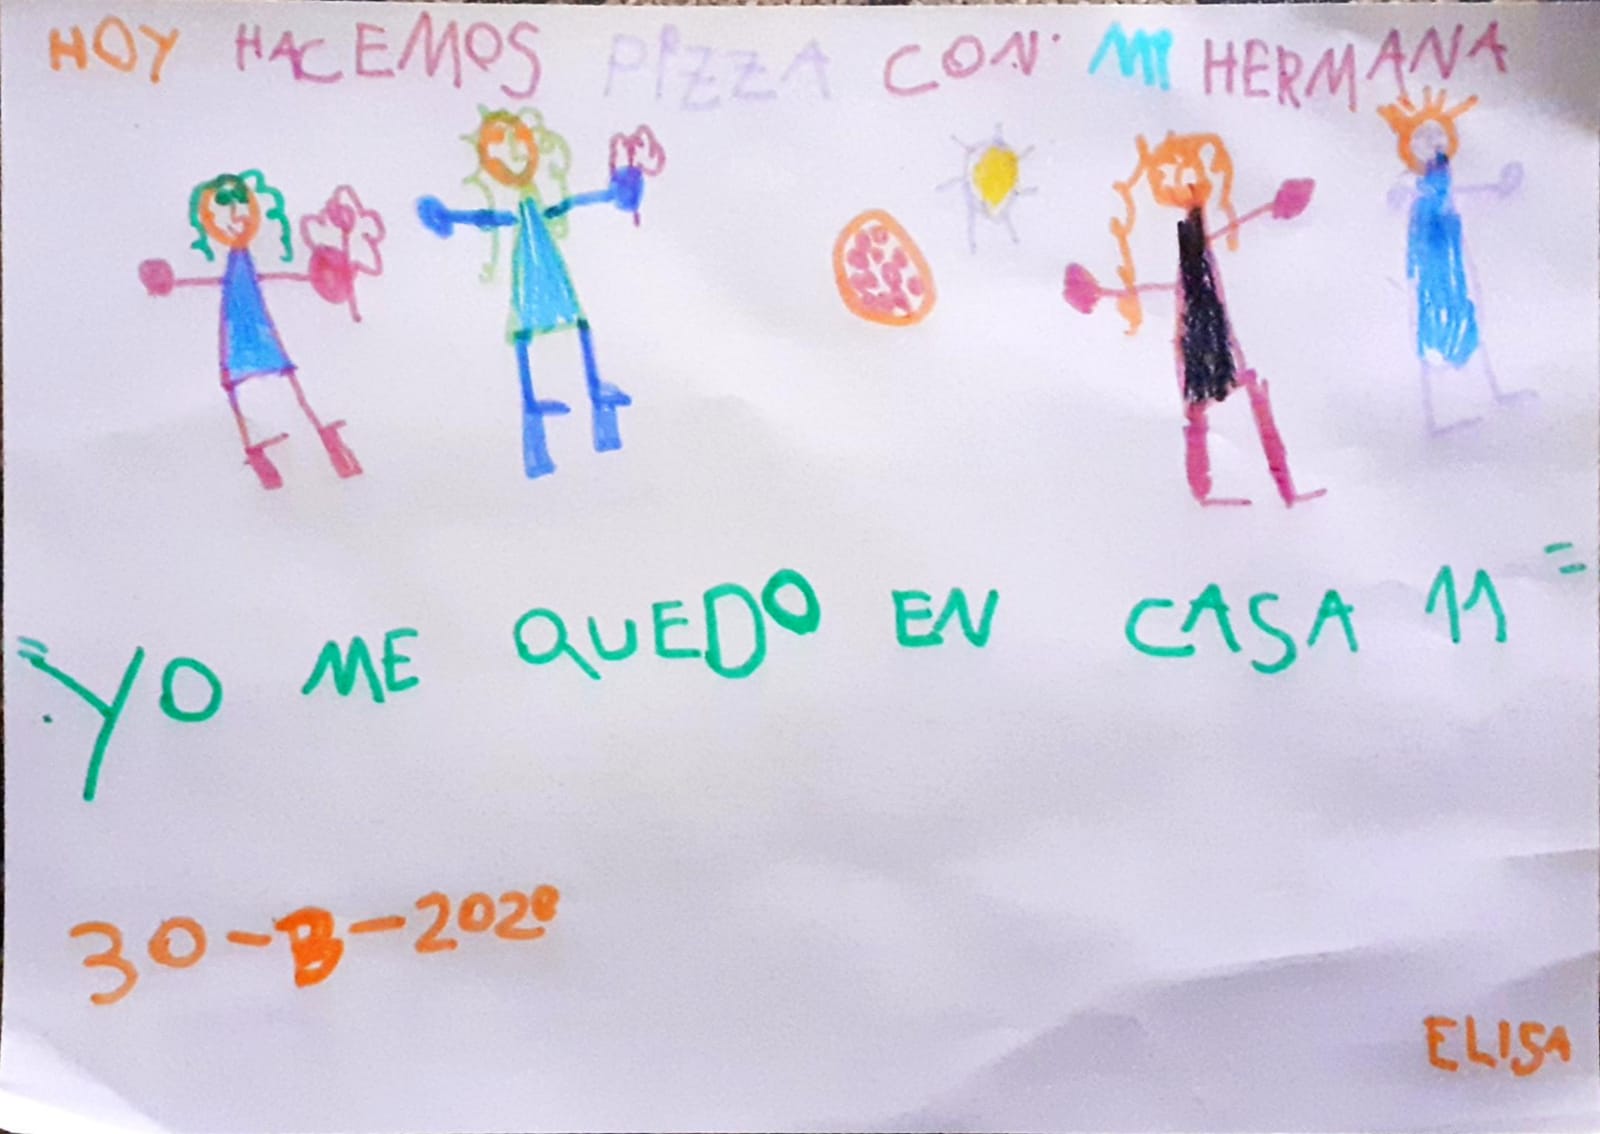 HOY HACEMOS PIZZA CON MI HERMANA
"YO ME QUEDO EN CASA 11"
30-3-2020
ELISA